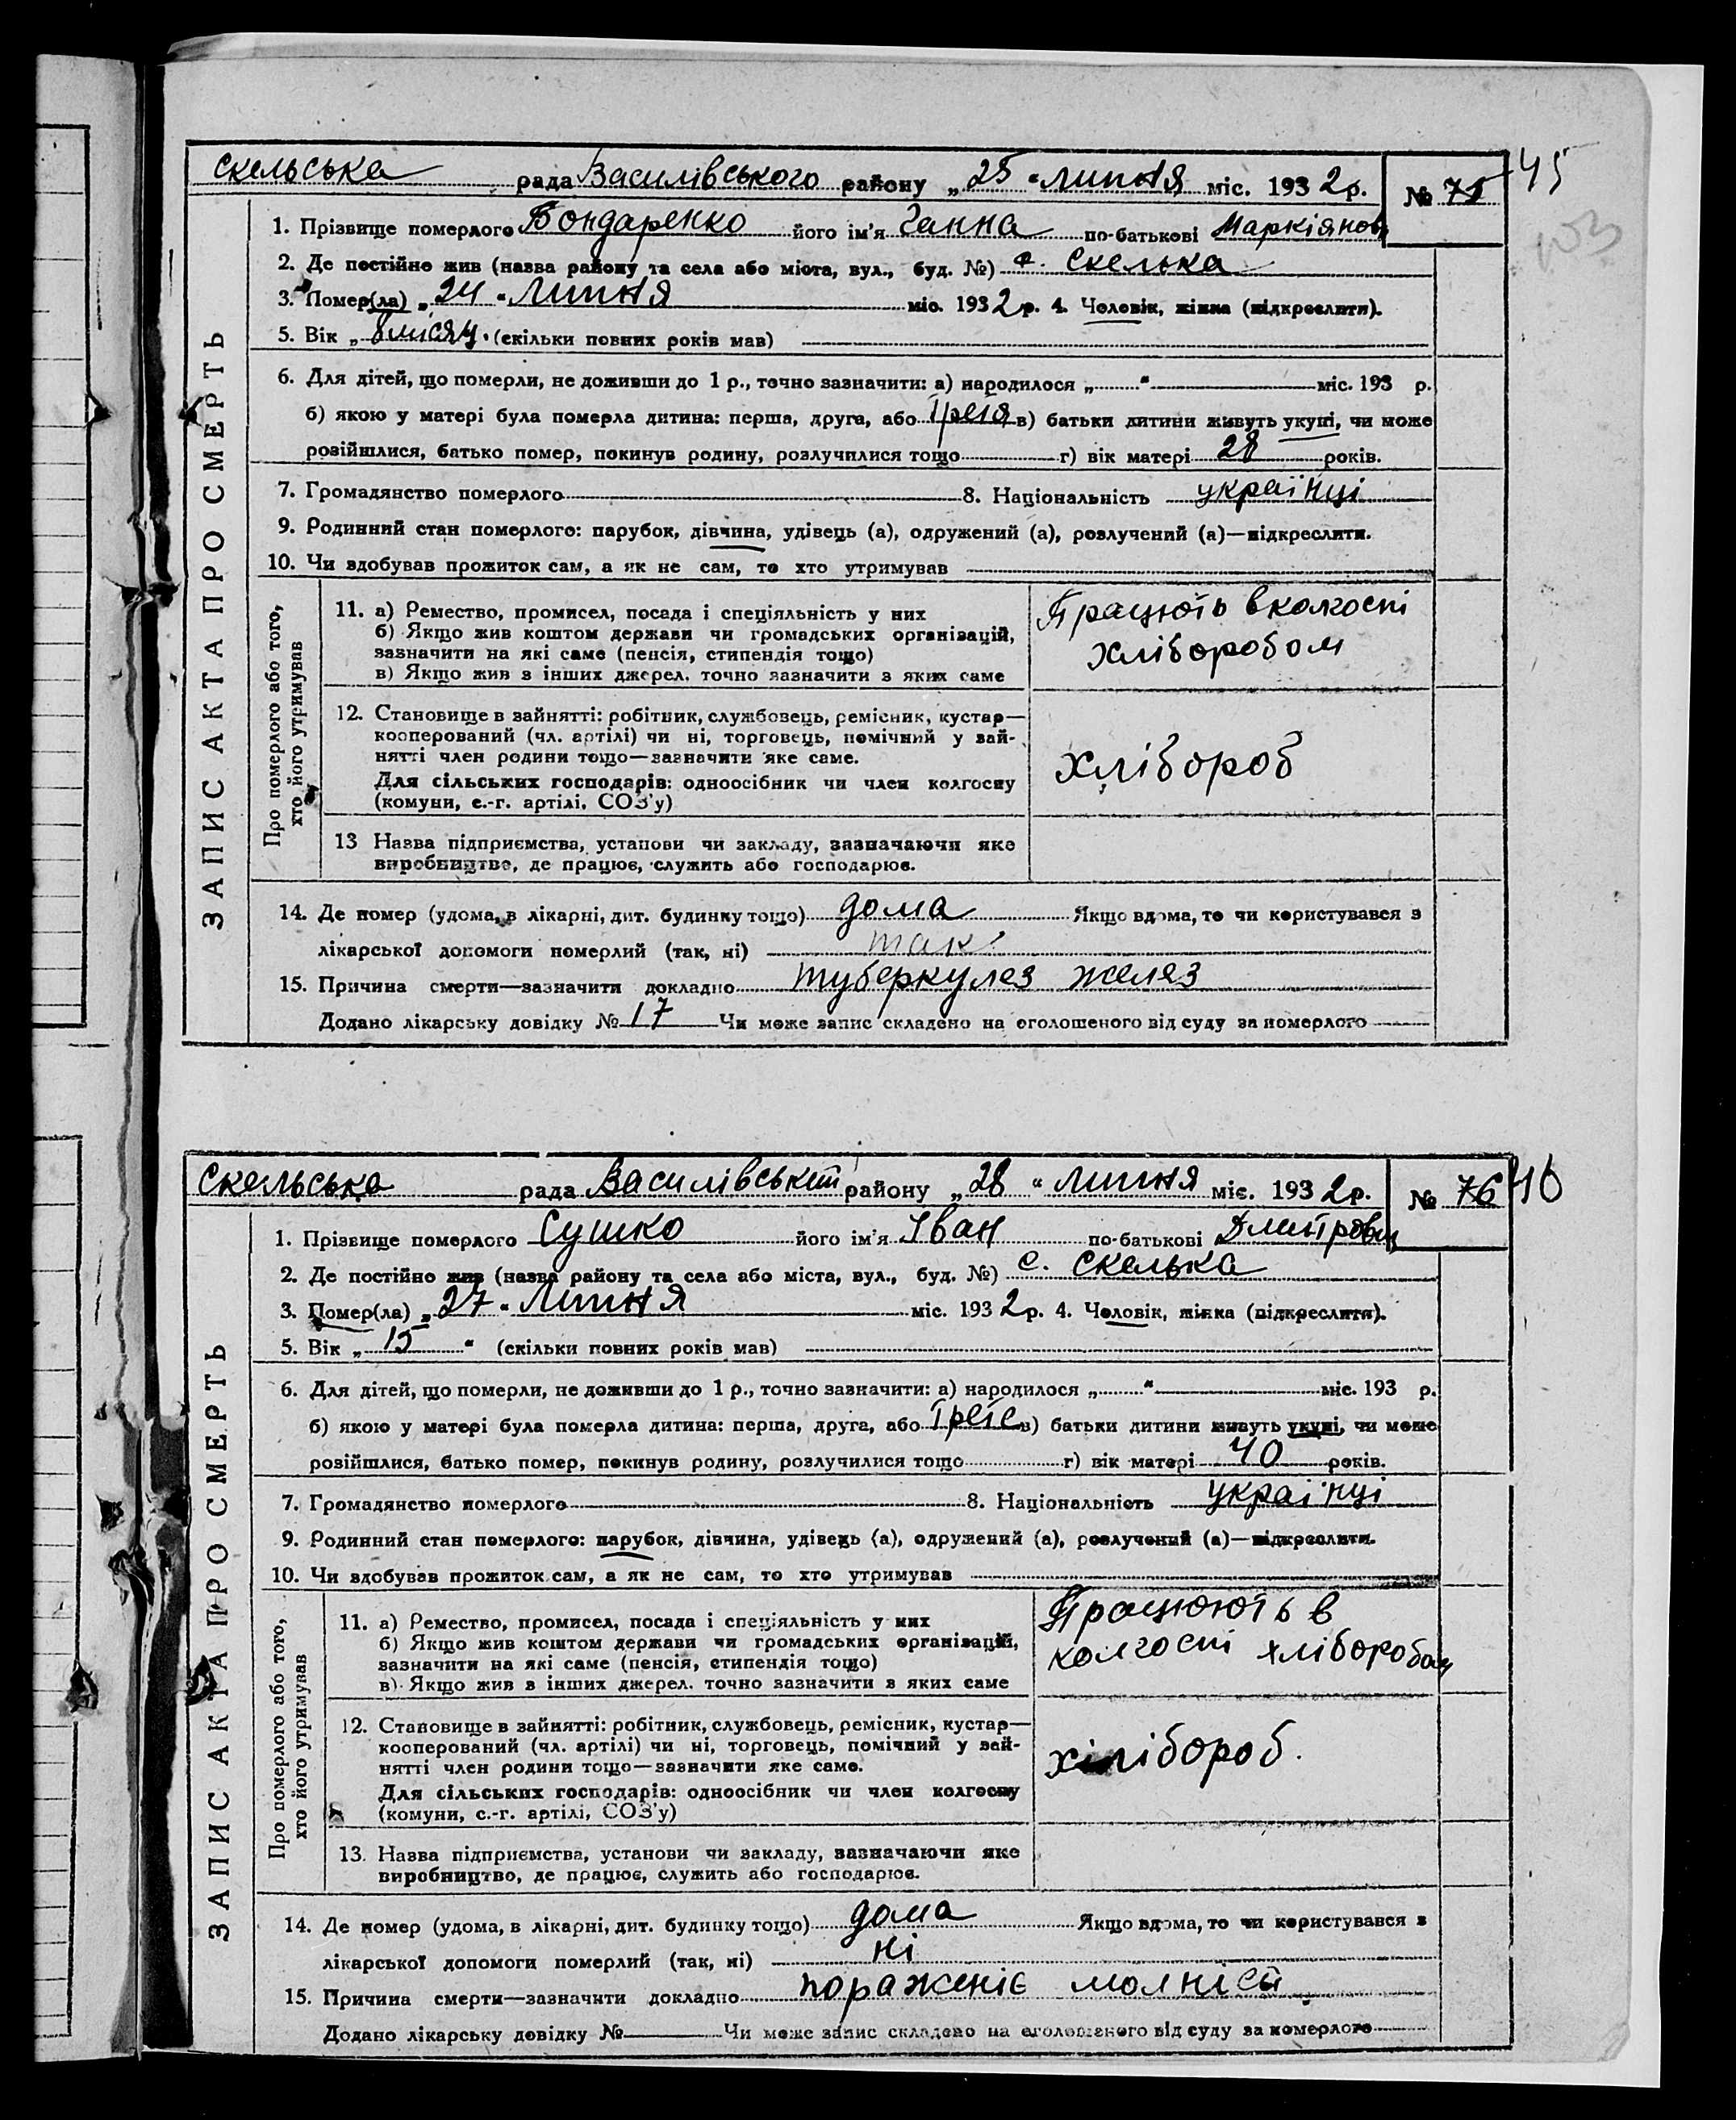 Скельська рада Василівського району „25“ липня міс. 1932р. № 75 45
103
1. Прізвище померлого Бондаренко його ім'я Ганна по-батькові Маркіянов
2. Де постійно жив (назва району та села або міста, вул., буд. №) с. Скелька
3. Помер(ла) „24“ Липня міс. 1932р. 4. Чоловік, жінка (підкреслити).
5. Вік „8 місяц. (скільки повних років мав)
6. Для дітей, що померли, не доживши до 1 р., точно зазначити: а) народилося „ “ міс. 193 р.
б) якою у матері була померла дитина: перша, друга, або Третя в) батьки дитини живуть укупі, чи може
розійшлися, батько помер, покинув родину, розлучилися тощо г) вік матері 28 років.
7. Громадянство померлого 8. Національність українці
9. Родинний стан померлого: парубок, дівчина, удівець (а), одружений (а), розлучений (а)—підкреслити.
10. Чи здобував прожиток сам, а як не сам, то хто утримував
ЗАПИС АКТА ПРО СМЕРТЬ
Про померлого або того,
хто його утримував
11. а) Ремество, промисел, посада і спеціяльність у них
б) Якщо жив коштом держави чи громадських організацій,
зазначити на які саме (пенсія, стипендія тощо)
в) Якщо жив з інших джерел. точно зазначити з яких саме
Працють в колгоспі
хліборобом
12. Становище в зайнятті: робітник, службовець, ремісник, кустар—
кооперований (чл. артілі) чи ні, торговець, помічний у зай-
нятті член родини тощо—зазначити яке саме.
Для сільських господарів: одноосібник чи член колгоспу
(комуни, с.-г. артілі, СОЗ'у)
хлібороб
13 Назва підприємства, установи чи закладу, зазначаючи яке
виробництво, де працює, служить або господарює.
14. Де помер (удома, в лікарні, дит. будинку тощо) дома Якщо вдома, то чи користувався з
лікарської допомоги померлий (так, ні) так
15. Причина смерти—зазначити докладно туберкулез желяз
Додано лікарську довідку № 17 Чи може запис складено на оголошеного від суду за померлого
Скельська рада Василівськ району „28“ липня міс. 1932р. № 76 46
1. Прізвище померлого Сушко його ім'я Іван по-батькові Дмитрович
2. Де постійно жив (назва району та села або міста, вул., буд. №) с. Скелька
3. Помер(ла) „27“ Липня міс. 1932р. 4. Чоловік, жінка (підкреслити).
5. Вік „15“ (скільки повних років мав)
6. Для дітей, що померли, не доживши до 1 р., точно зазначити: а) народилося „ “ міс. 193 р.
б) якою у матері була померла дитина: перша, друга, або Трете в) батьки дитини живуть укупі, чи може
розійшлися, батько помер, покинув родину, розлучилися тощо г) вік матері 40 років.
7. Громадянство померлого 8. Національність українці
9. Родинний стан померлого: парубок, дівчина, удівець (а), одружений (а), розлучений (а)—підкреслити.
10. Чи здобував прожиток сам, а як не сам, то хто утримував
ЗАПИС АКТА ПРО СМЕРТЬ
Про померлого або того,
хто його утримував
11. а) Ремество, промисел, посада і спеціяльність у них
б) Якщо жив коштом держави чи громадських організацій,
зазначити на які саме (пенсія, стипендія тощо)
в) Якщо жив з інших джерел. точно зазначити з яких саме
Працюють в
колгоспі хліборобом
12. Становище в зайнятті: робітник, службовець, ремісник, кустар—
кооперований (чл. артілі) чи ні, торговець, помічний у зай-
нятті член родини тощо—зазначити яке саме.
Для сільських господарів: одноосібник чи член колгоспу
(комуни, с.-г. артілі, СОЗ'у)
хлібороб.
13. Назва підприємства, установи чи закладу, зазначаючи яке
виробництво, де працює, служить або господарює.
14. Де помер (удома, в лікарні, дит. будинку тощо) дома Якщо вдома, то чи користувався з
лікарської допомоги померлий (так, ні) ні
15. Причина смерти—зазначити докладно пораженіє молнієй
Додано лікарську довідку № Чи може запис складено на оголошеного від суду за померлого